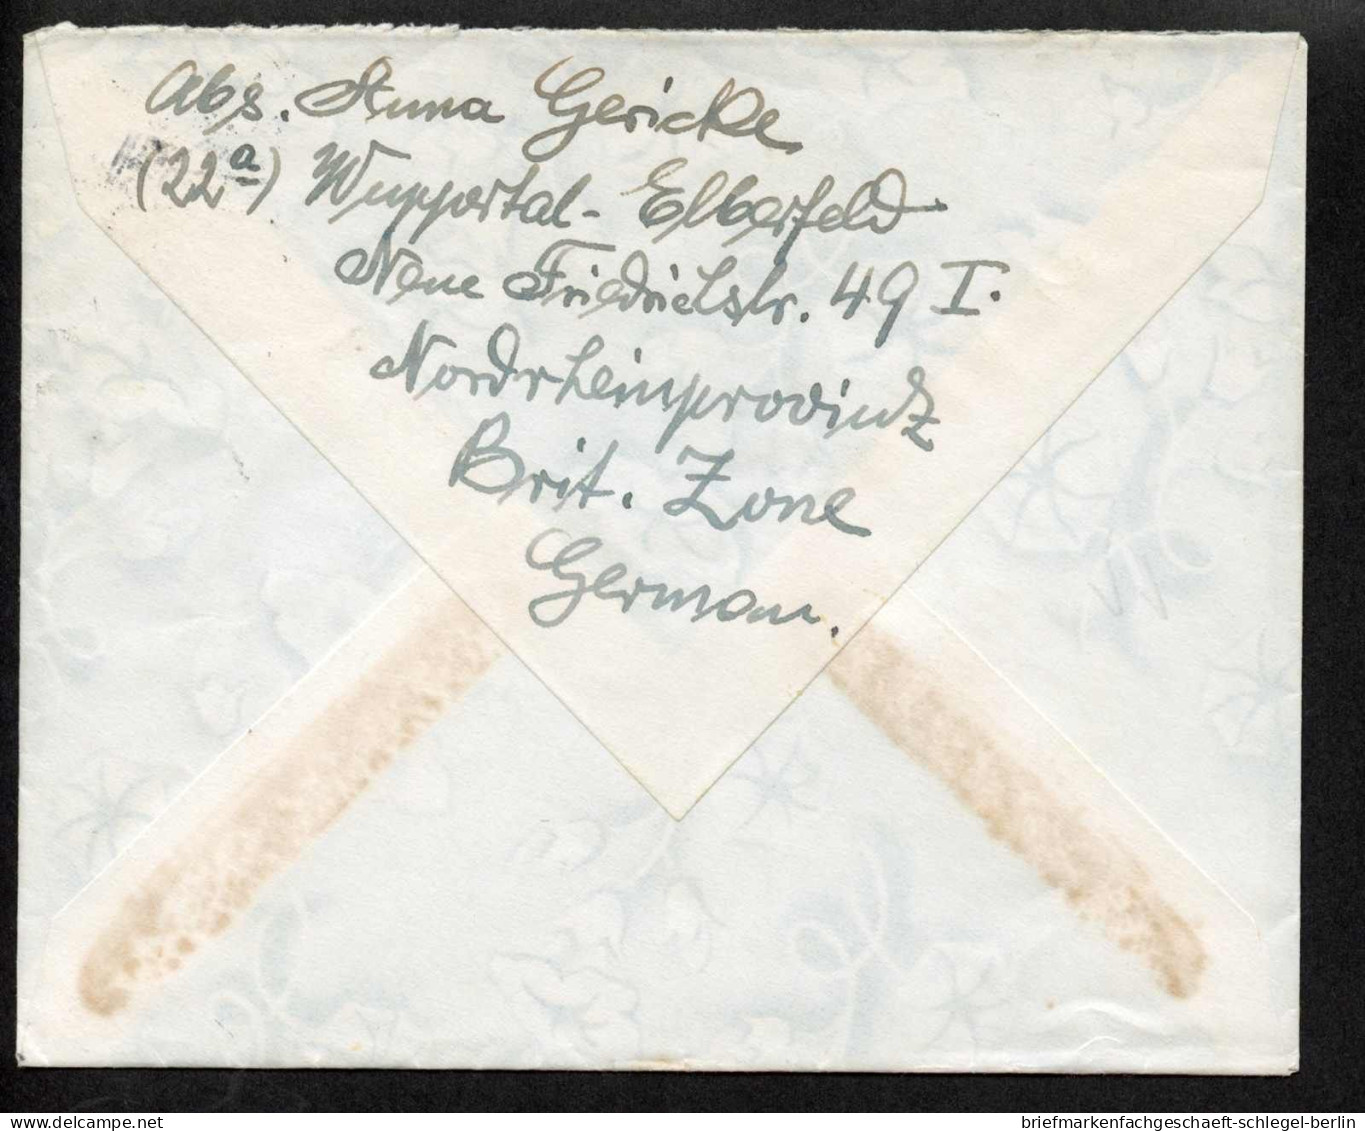 Abs. Anna Gericke
(22a) Wuppertal-Elberfeld
Neue Friedrichstr. 49 I.
Nordrheinprovinz
Brit. Zone
German.
briefmarkenfachgeschaeft-schlegel-berlin